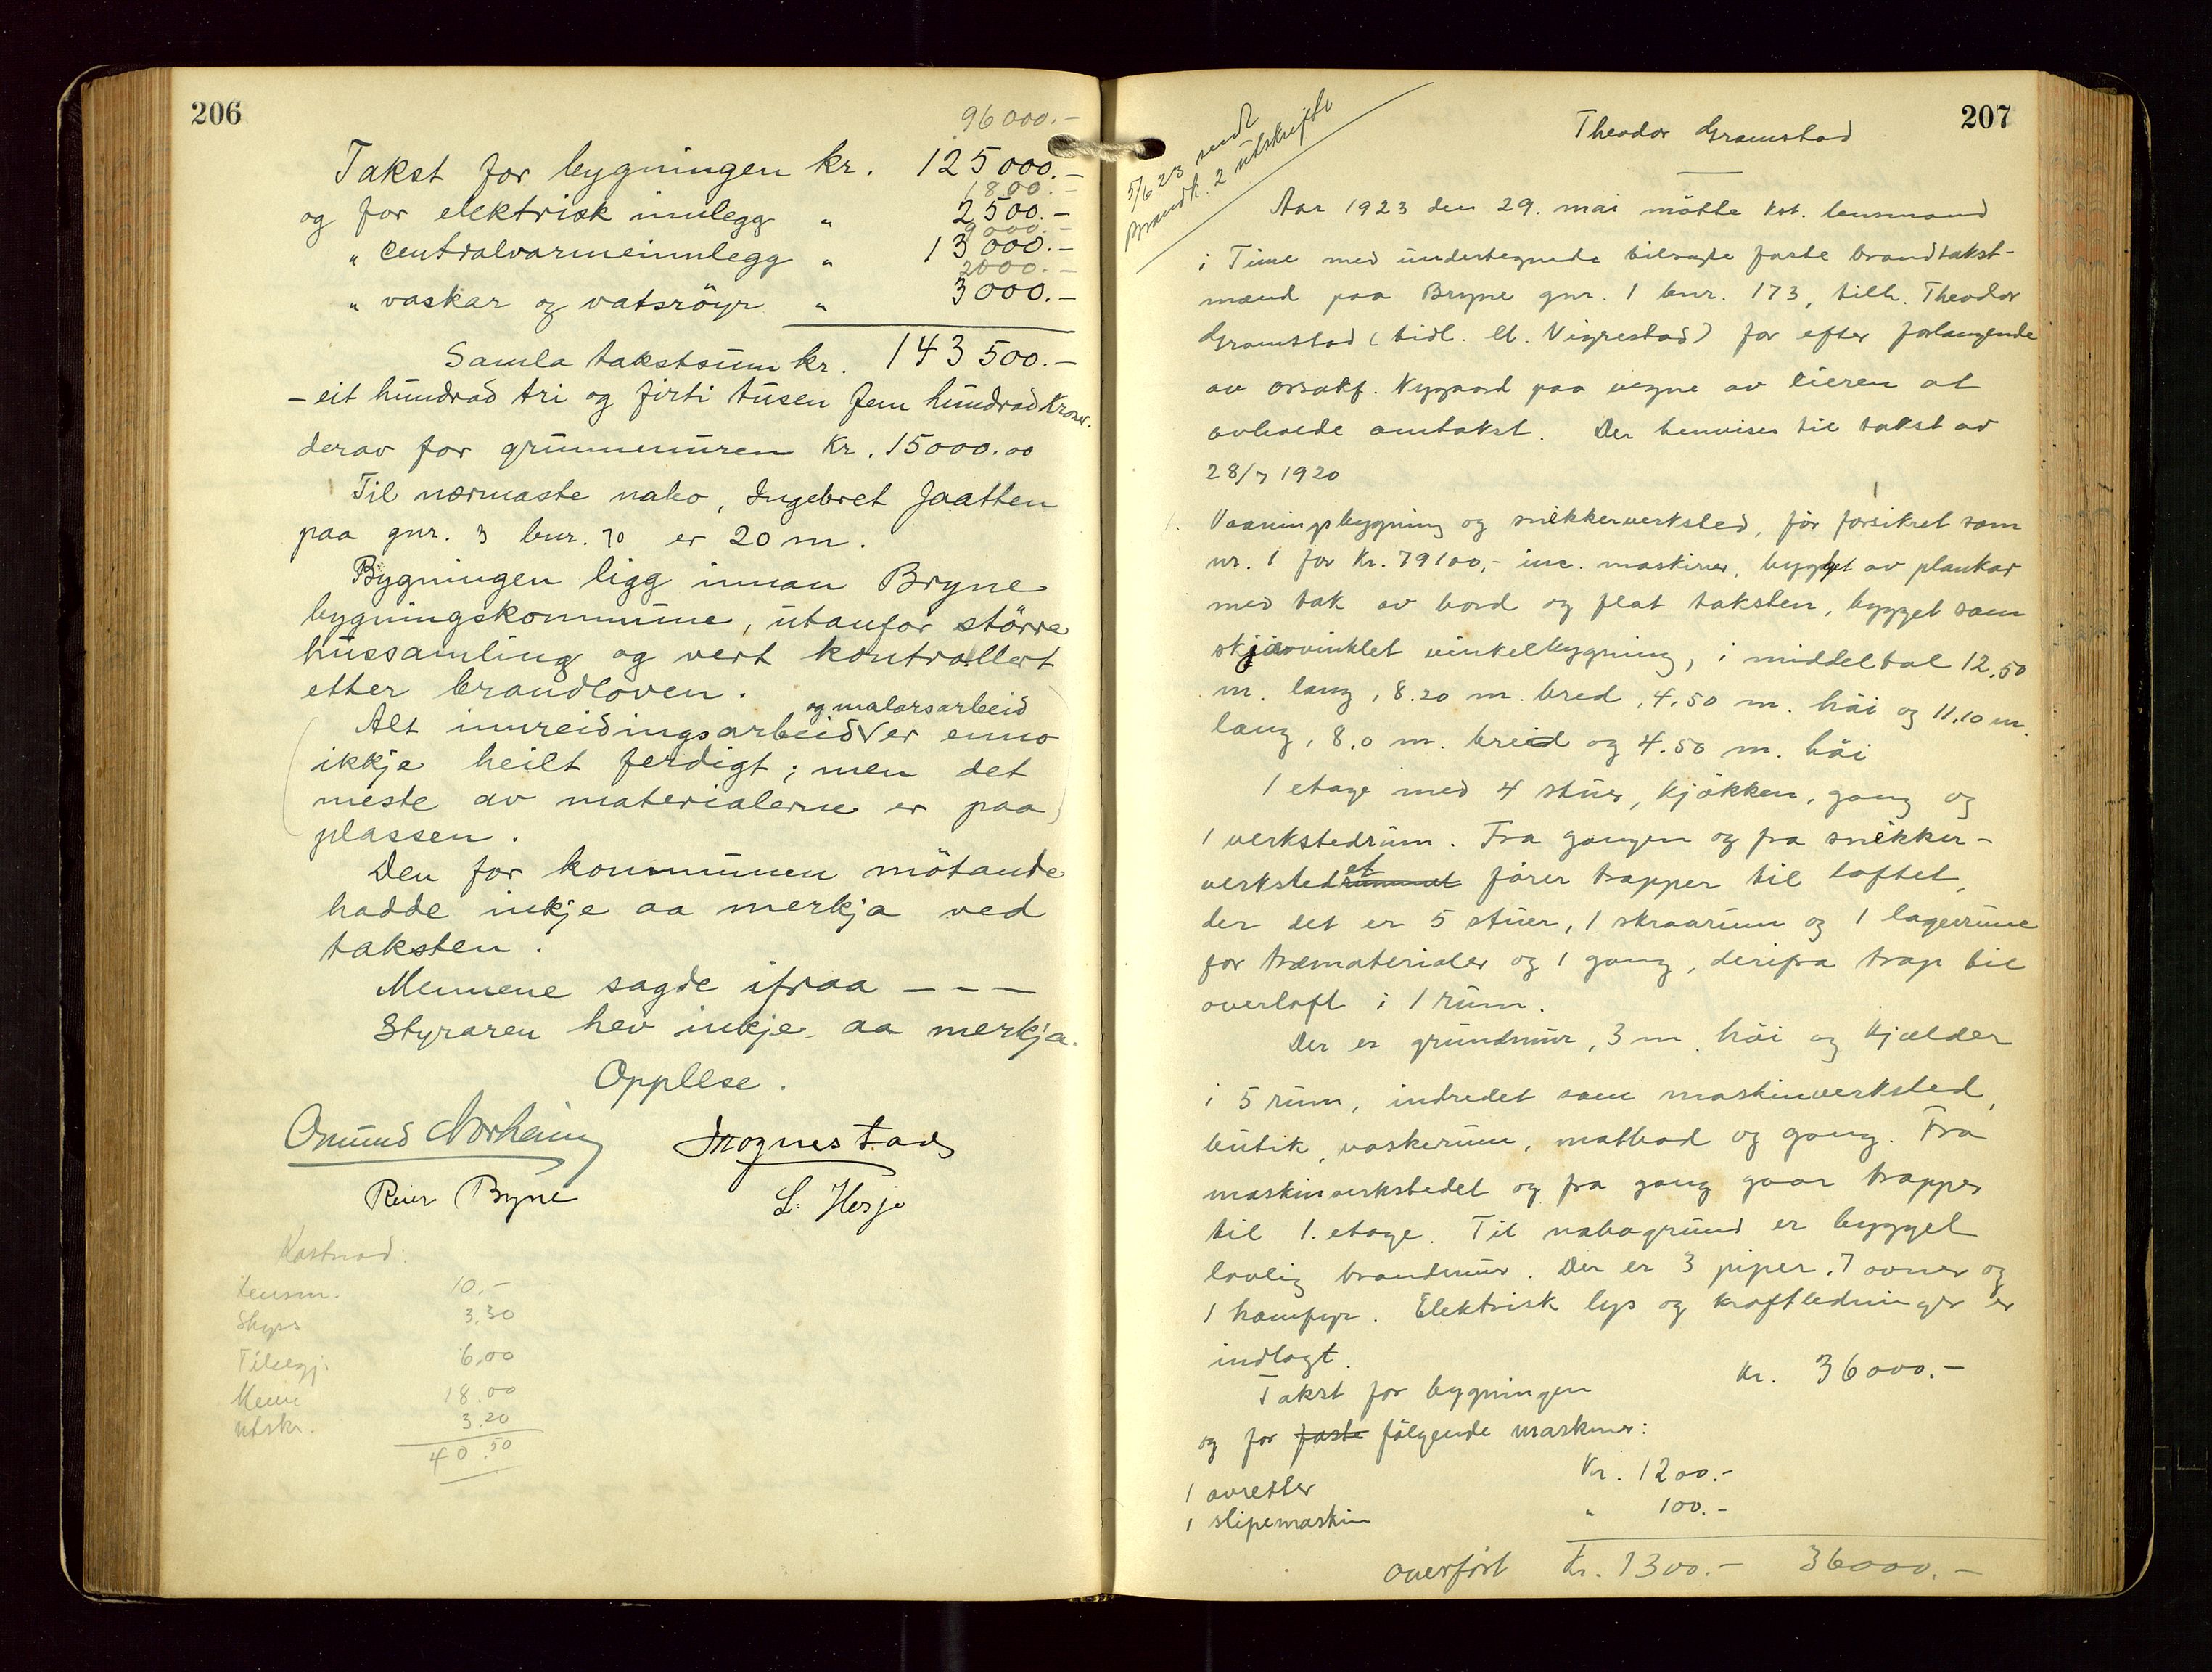 206
96 000.-
Takst for bygningen kr. 125 000.-
1800.-
og for elektrisk innlegg " 2500.-
9000.-
" centralvarmeinnlegg " 13 000.-
2000.-
" vaskar og vatsröyr " 3 000.-
Samla takstsum kr. 143 500.-
- eit hundrad tri og firti tusen fem hundrad Kroner.
derav for grunnmuren Kr. 15000.00
Til nærmaste nabo, Ingebret Jaatten
paa gnr. 3 bnr. 70 er 20 m.
Bygningen ligg innan Bryne
bygningskommune, utanfor större
hussamling og vert kontrollert
etter brandloven.
og malararbeid
Alt innreidingsarbeid er enno
ikkje heilt ferdigt; men det
meste av materialerne er paa
plassen.
Den for kommunen mötande
hadde inkje aa merkja ved
taksten.
Mennene sagde ifraa - - -
Styraren hev inkje aa merkja.
Opplese.
Omund Norheim Mognestad
Reier Bryne L. Hesje
Kostnad:
Lensm. 10,-
Skyss 3,30
Tilsegj. 6,00
Menn 18.00
Utskr. 3.20
40.50
207
5/6 23 sendt
Brandk. 2 utskrifter
Theodor Gramstad
Aar 1923 den 29. mai mötte kst. lensmand
i Time med undertegnede tilsagte faste brandtakst-
mænd paa Bryne gnr. 1 bnr. 173, tilh. Theodor
Gramstad (tidl. El. Vigrestad) for efter forlangende
av orsakf. Nygaard paa vegne av eieren at
avholde omtakst. Der henvises til takst av
28/7 1920
1. Vaaningsbygning og snekkerverksted, för forsikret som
nr. 1 for Kr. 79100,- inc. maskiner, bygget av plankar
med tak av bord og flat taksten, bygget som
skjævvinklet vinkelbygning, i middeltal 12,50
m. lang, 8.20 m. bred, 4,50 m. höi og 11,10 m.
lang, 8.0 m. breid og 4.50 m. höi
1 etage med 4 stuer, kjökken, gang og
1 verkstedrum. Fra gangen og fra snekker-
verkstedrummet et förer trapper til loftet,
der det er 5 stuer, 1 skraarum og 1 lagerrum
for træmaterialer og 1 gang, derifra trap til
overloft i 1 rum.
Der er grundmur, 3 m. höi og kjælder
i 5 rum, indredet som maskinverksted,
butik, vaskerum, matbod og gang. Fra
maskinverkstedet og fra gang gaar trapper
til 1. etage. Til nabogrund er bygget
lovlig brandmur. Der er 3 piper, 7 ovner og
1 komfyr. Elektrisk lys og kraftledninger er
indlagt.
Takst for bygningen Kr. 36000.-
og for faste fölgende maskiner:
1 avretter Kr. 1200.-
1 slipemaskin " 100.-
overfört Kr. 1300.- 36000.-